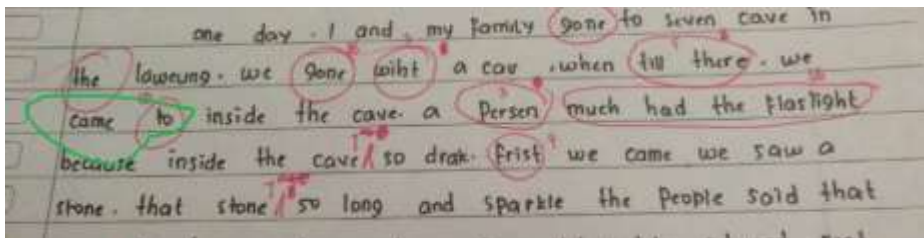 one day. I and my family gone to seven cave in
the laweung. we gone wiht a cav .when till there. we
came to inside the cave. a Persen much had the flaslight
because inside the cave so drak. frist we came we saw a
stone. that stone so long and sparkle the people said that